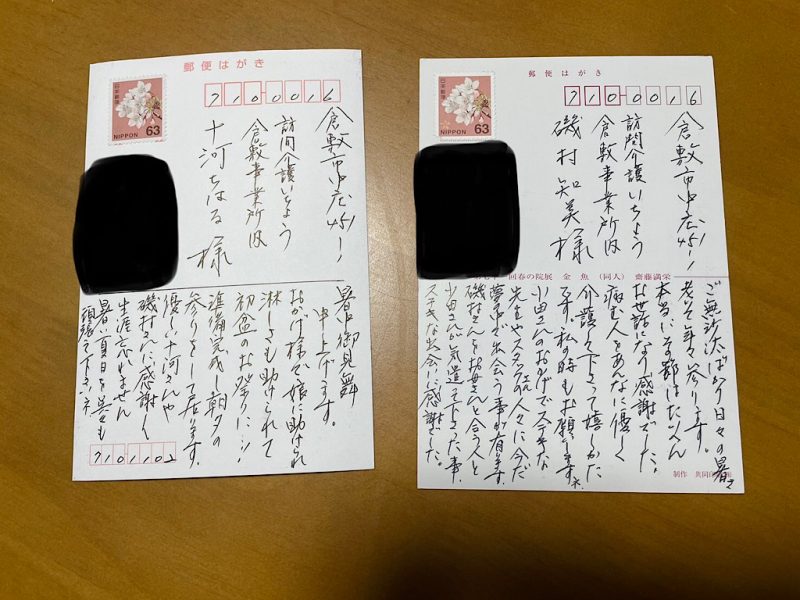 郵便はがき
日本郵便
NIPPON 63
7100016
倉敷市中庄451-1
訪問介護いちよう
倉敷事業所内
十河ちはる様
暑中御見舞
申上げます。
おかげ様で娘に助けられ
淋しさも助けられて
初盆のお祭りに
準備完成し朝夕の
参りをして居ります。
優しい十河さんや
磯村さんに感謝し
生涯忘れません
暑い夏日を共々
頑張って下さいネ
7101102
郵便はがき
日本郵便
NIPPON 63
7100016
倉敷市中庄451-1
訪問介護いちよう
倉敷事業所内
磯村知美様
回春の院展 金魚 (同人) 齋藤満栄
ご無沙汰ばかり日々の暑さ
老で年々参ります。
本当にその節はたいへん
お世話になり感謝でした。
病む人をあんなに優しく
介護して下さって嬉しかた
です。私の時もお願いします。
小田さんのおかげでステキな
先生やスタッフさんの人々に今だ
夢中で出会う事が有ります。
磯村さんをお母さんと合う人と
小田さんが気遣って下さった事
ステキな出会いに感謝でした。
制作 共同印刷